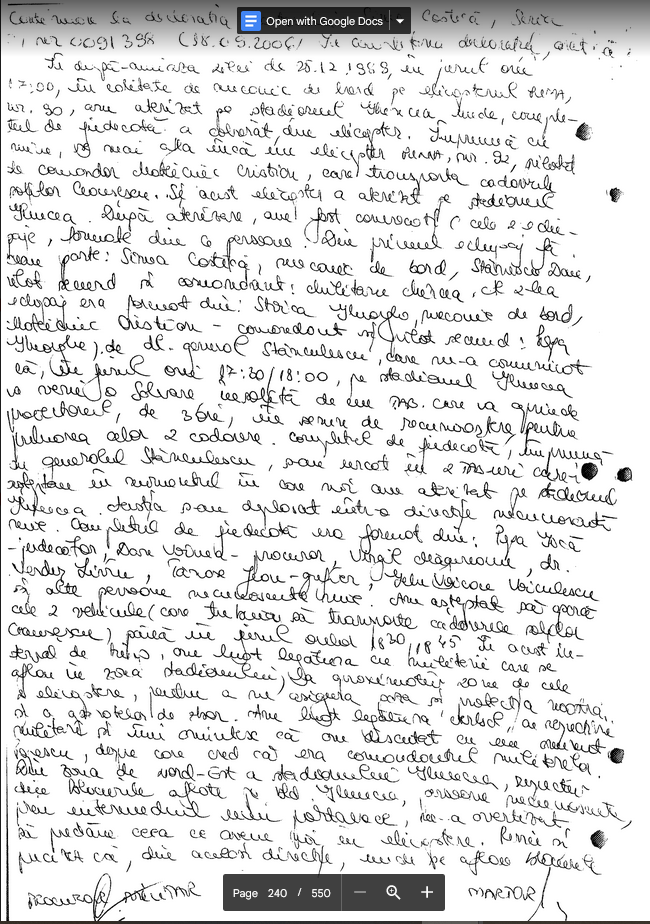 Open with Google Docs
Continuare la declarația Costică, Seria
, nr 0091398 (18.05.2006) În continuarea declarației, arăt că:
În după-amiaza zilei de 25.12.1989, în jurul orei
17:00, în calitate de mecanic de bord pe elicopterul
nr. 90, am aterizat pe stadionul Ghencea unde, comple-
tul de judecată a coborât din elicopter. Împreună cu
mine, se mai afla încă un elicopter nr. 92, pilotat
de comandor Mateiciuc Cristian, care transporta cadavrele
soților Ceaușescu. Și acest elicopter a aterizat pe stadionul
Ghencea. După aterizare, am fost convocați (cele 2 echi-
paje, formate din 6 persoane. Din primul echipaj fă-
ceau parte: Costică, mecanic de bord,
pilot secund și comandant: cel de-al 2-lea
echipaj era format din: Stoica Gheorghe, mecanic de bord,
Mateiciuc Cristian - comandant și pilot secund: Popa
Gheorghe), de dl. general Stănculescu, care ne-a comunicat
că, în jurul orei 17:30/18:00, pe stadionul Ghencea
va veni o Salvare însoțită de un TAB. care va aprinde
proiectorul, de 3 ori, în semn de recunoaștere pentru
preluarea celor 2 cadavre. Completul de judecată, împreună
cu generalul Stănculescu, s-au urcat în 2 TAB-uri care-i
așteptau în momentul în care noi am aterizat pe stadionul
Ghencea. Aceștia s-au deplasat într-o direcție necunoscută
mie. Completul de judecată era format din: Popa Gică
- judecător, Dan Voinea - procuror, Virgil Măgureanu, dr.
Verdeș Liviu, Tănase Ioan - grefier, Gelu Voican Voiculescu
și alte persoane necunoscute mie. Am așteptat să apară
cele 2 vehicule (care trebuiau să transporte cadavrele soților
Ceaușescu) până în jurul orelor 18 30, 18 45. În acest in-
terval de timp, am luat legătura cu militarii care se
aflau în zona stadionului, la aproximativ 20 m de cele
2 elicoptere, pentru a ne asigura paza și protecția noastră
și a aparatelor de zbor. Am luat legătura verbal, cu respectivii
militari și îmi amintesc că am discutat cu un
Ionescu, despre care cred că era comandantul militarilor.
Din zona de nord-Est a stadionului Ghencea, respectiv
dinspre blocurile aflate pe bld Ghencea, persoane necunoscute,
prin intermediul unei portavoce, ne-a avertizat
să predăm ceea ce avem noi în elicoptere. Revin și
precizez că, din aceeași direcție, unde se aflau blocurile
PROCUROR MILITAR
MARTOR
Page 240 / 550